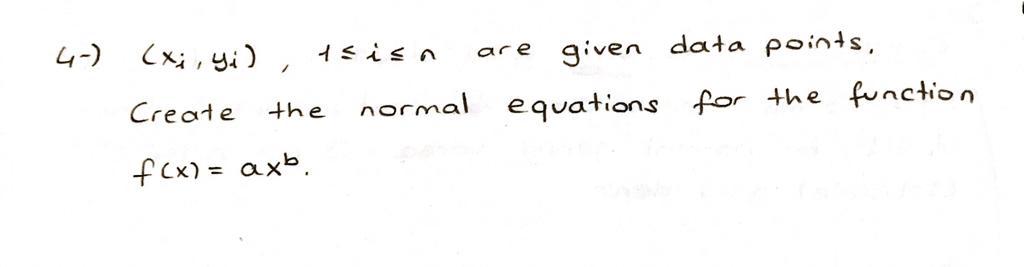 4-) (xi, yi), 1 ≤ i ≤ n are given data points.
Create the normal equations for the function
f(x) = ax^b.